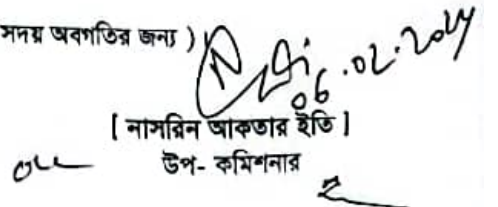 সদয় অবগতির জন্য )
06.02.2024
[ নাসরিন আকতার ইতি ]
উপ- কমিশনার